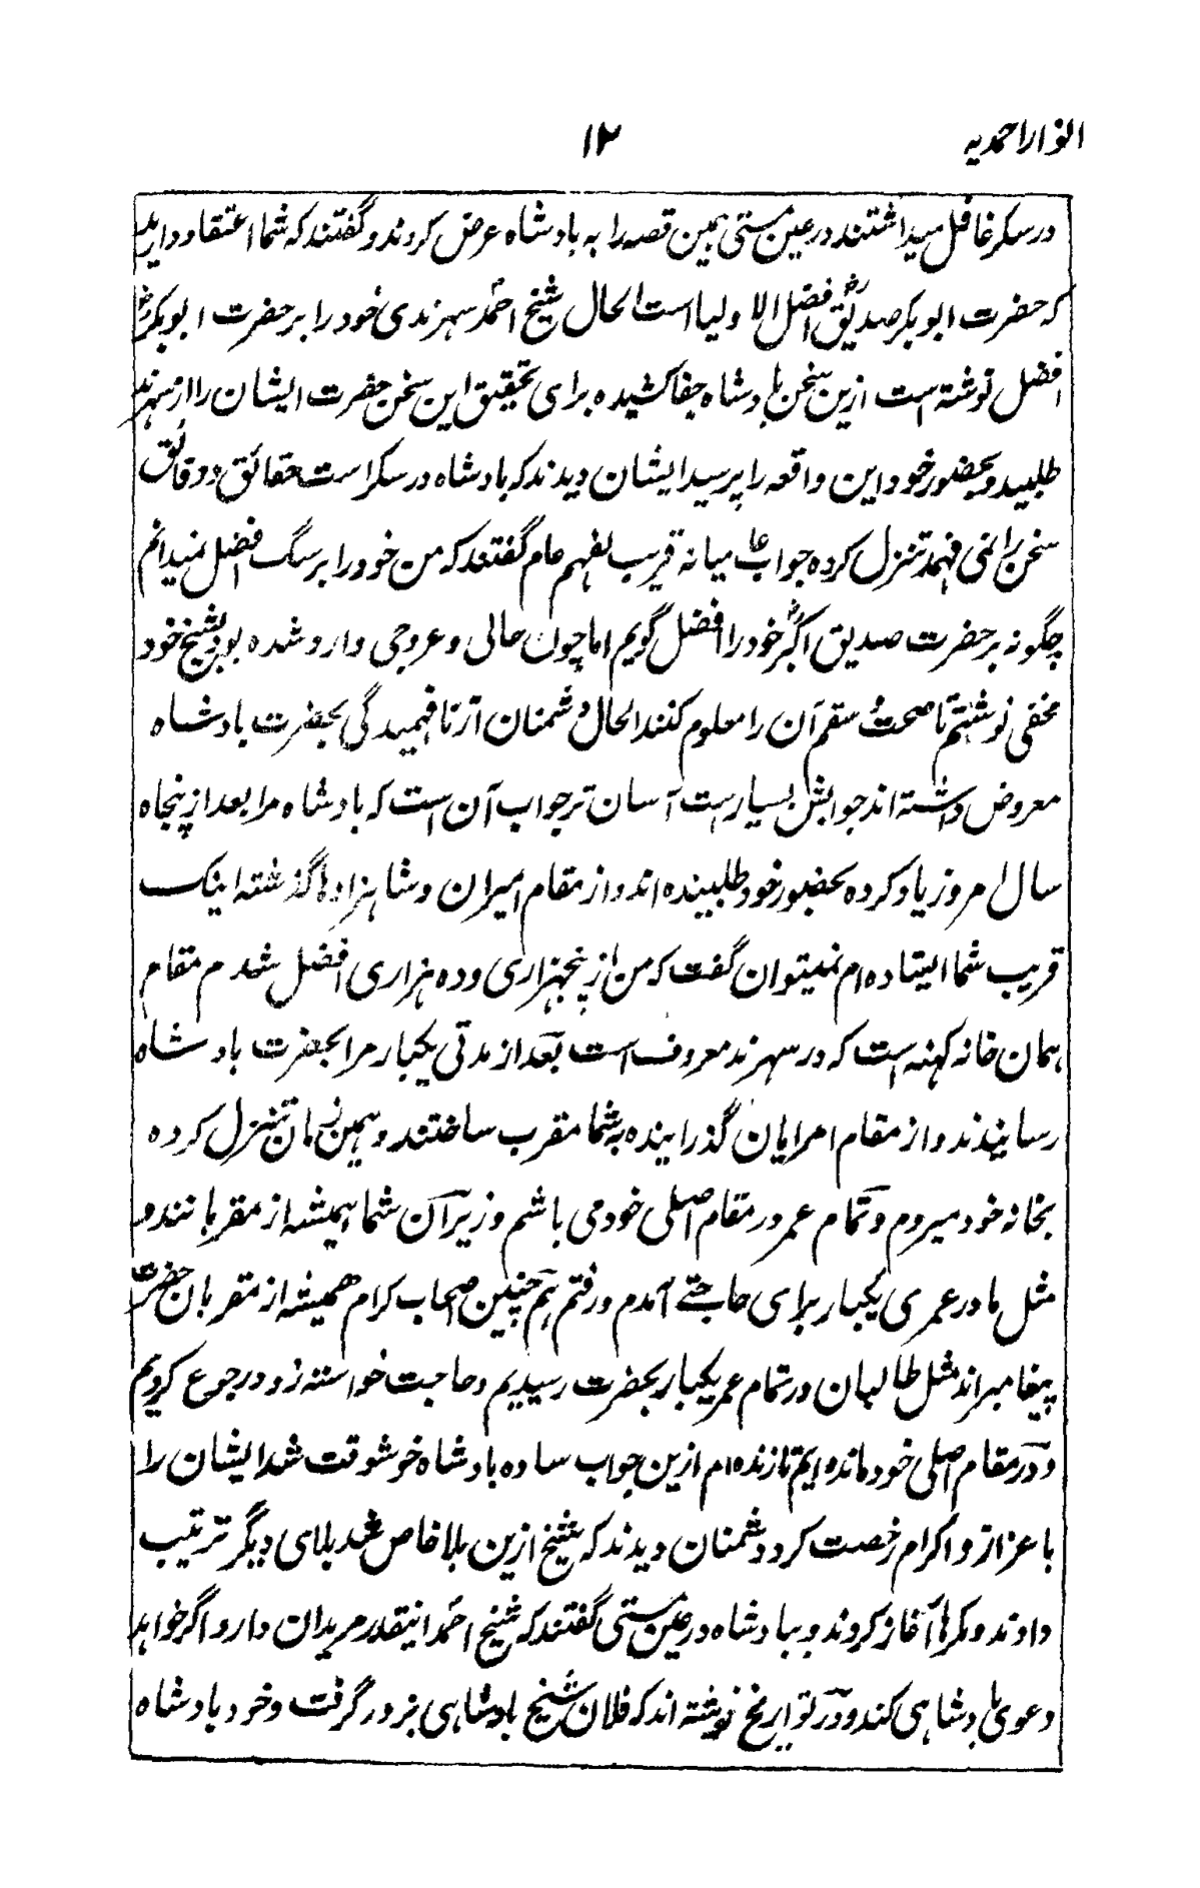 انوار احمدیه
۱۲
در سکر غافل میداشتند در عین مستی همین قصه را به بادشاه عرض کردند و گفتند که شما اعتقاد دارید
که حضرت ابوبکر صدیق رض افضل الاولیا است الحال شیخ احمد سهرندی خود را بر حضرت ابوبکر رض
افضل نوشته است ازین سخن بادشاه جفا کشیده برای تحقیق این سخن حضرت ایشان را از سهرند
طلبید و بحضور خود این واقعه را پرسید ایشان دیدند که بادشاه در سکر است حقائق و دقائق
سخن را نمی فهمد تنزل کرده جواب عامیانه قریب بفهم عام گفتند که من خود را بر سگ افضل نمیدانم
چگونه بر حضرت صدیق اکبر رض خود را افضل گویم اما چون حالی و عروجی وارد شده بود بشیخ خود
مخفی نوشتم تا صحت و سقم آن را معلوم کنند الحال دشمنان از نا فهمیدگی بحضرت بادشاه
معروض داشته اند جوابش بسیار است آسان تر جواب آن است که بادشاه مرا بعد از پنجاه
سال امروز یاد کرده بحضور خود طلبیده اند و از مقام امیران و شاهزادها گذشته اینک
قریب شما ایستاده ام نمیتوان گفت که من از پنجهزاری و ده هزاری افضل شدم مقام
همان خانه کهنه است که در سهرند معروف است بعد از مدتی یکبار مرا بحضرت بادشاه
رسانیدند و از مقام امرایان گذرانیده به شما مقرب ساختند و همین زمان تنزل کرده
بخانه خود میروم و تمام عمر در مقام اصلی خود می باشم وزیران شما همیشه از مقربانند و
مثل ما در عمری یکبار برای حاجتے آمدم و رفتم هم چنین اصحاب کرام همیشه از مقربان حضرت
پیغامبراند مثل طالبان در تمام عمر یکبار بحضرت رسیدیم و حاجت خواسته زود رجوع کردیم
و در مقام اصلی خود مانده ایم تا زنده ام ازین جواب ساده بادشاه خوشوقت شد ایشان را
با عزاز و اکرام رخصت کرد دشمنان دیدند که شیخ ازین بلا خلاص شد بلای دیگر ترتیب
دادند و مکرها آغاز کردند و ببادشاه در عین مستی گفتند که شیخ احمد اینقدر مریدان دارد اگر خواهد
دعوی بادشاهی کند و در تواریخ نوشته اند که فلان شیخ بادشاهی بزور گرفت و خرد بادشاه